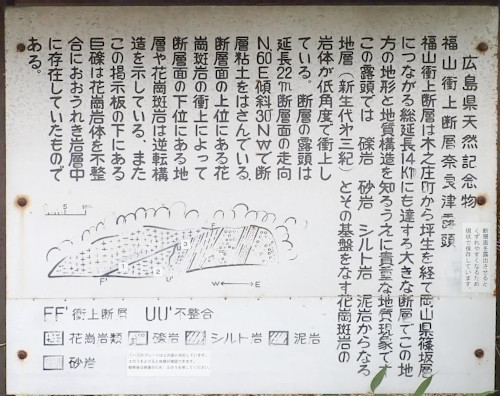 広島県天然記念物
福山衝上断層奈良津露頭
福山衝上断層は木之庄町から坪生を経て岡山県篠坂層
につながる総延長14Kmにも達する大きな断層でこの地
方の地形と地質構造を知るうえに貴重な地質現象です
この露頭では 礫岩 砂岩 シルト岩 泥岩からなる
地層(新生代第三紀)とその基盤をなす花崗斑岩の
岩体が低角度で衝上し
ている。断層の露頭は
延長22m断層面の走向
N.60E傾斜30°NWで断
層粘土をはさんでいる。
断層面の上位にある花
崗斑岩の衝上によって
断層面の下位にある地
層や花崗斑岩は逆転構
造を示している、また
この掲示板の下にある
巨礫は花崗岩体を不整
合におおうれき岩層中
に存在していたもので
ある。
断層面を露出させると
くずれやすくなるため
現状で保存しています。
5m
F
U
F'
U'
1
2
3
W
E
FF'衝上断層 UU'不整合
花崗岩類 礫岩 シルト岩 泥岩
砂岩